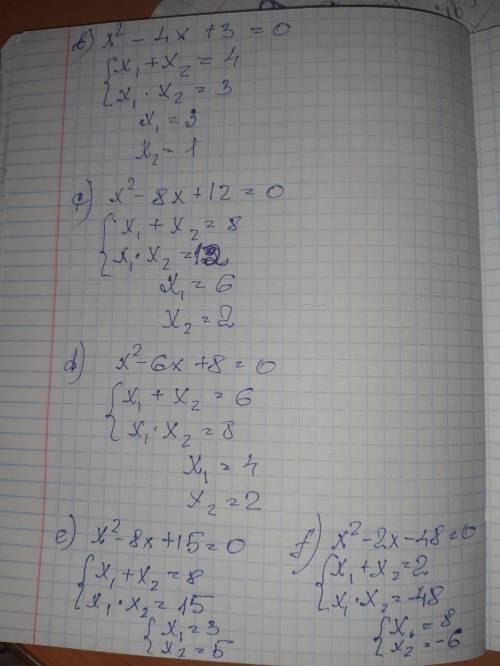 b) x² - 4x + 3 = 0
{x₁ + x₂ = 4
{x₁ · x₂ = 3
x₁ = 3
x₂ = 1
c) x² - 8x + 12 = 0
{x₁ + x₂ = 8
{x₁ · x₂ = 12
x₁ = 6
x₂ = 2
d) x² - 6x + 8 = 0
{x₁ + x₂ = 6
{x₁ · x₂ = 8
x₁ = 4
x₂ = 2
e) x² - 8x + 15 = 0
{x₁ + x₂ = 8
{x₁ · x₂ = 15
{x₁ = 3
{x₂ = 5
f) x² - 2x - 48 = 0
{x₁ + x₂ = 2
{x₁ · x₂ = -48
{x₁ = 8
{x₂ = -6